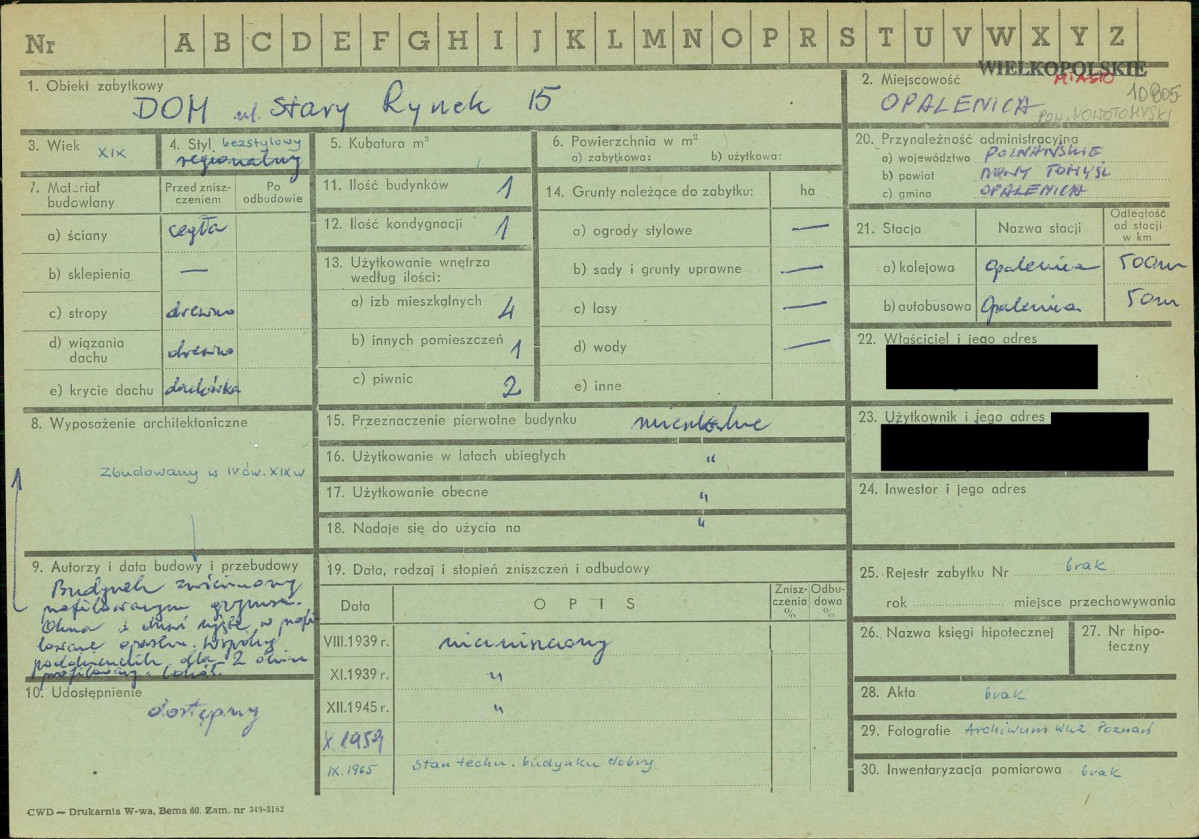 Nr A B C D E F G H I J K L M N O P R S T U V W X Y Z
WIELKOPOLSKIE
1. Obiekt zabytkowy
DOM ul. Stary Rynek 15
2. Miejscowość MIASTO
OPALENICA
10805
POW. NOWOTOMYSKI
3. Wiek XIX
4. Styl bezstylowy
regionalny
5. Kubatura m³
6. Powierzchnia w m²
a) zabytkowa: b) użytkowa:
7. Materiał budowlany
Przed zniszczeniem
Po odbudowie
a) ściany cegła
b) sklepienia —
c) stropy drewno
d) wiązania dachu drewno
e) krycie dachu dachówka
8. Wyposażenie architektoniczne
Zbudowany w IV ćw. XIX w
9. Autorzy i data budowy i przebudowy
Budynek zwieńczony
profilowanym gzymsem.
Okna i drzwi ujęte w profi
lowane opaski. Wspólny
podokiennik dla 2 okien
10. Udostępnienie
dostępny
11. Ilość budynków 1
12. Ilość kondygnacji 1
13. Użytkowanie wnętrza
według ilości:
a) izb mieszkalnych 4
b) innych pomieszczeń 1
c) piwnic 2
14. Grunty należące do zabytku: ha
a) ogrody stylowe —
b) sady i grunty uprawne —
c) lasy —
d) wody —
e) inne
15. Przeznaczenie pierwotne budynku mieszkalne
16. Użytkowanie w latach ubiegłych "
17. Użytkowanie obecne "
18. Nadaje się do użycia na "
19. Data, rodzaj i stopień zniszczeń i odbudowy
Data
OPIS
Zniszczenia %
Odbudowa %
VIII.1939 r. niezniszczony
XI.1939 r. "
XII.1945 r. "
X. 1959
IX. 1965 Stan techn. budynku dobry
20. Przynależność administracyjna
a) województwo POZNAŃSKIE
b) powiat NOWY TOMYŚL
c) gmina OPALENICA
21. Stacja
Nazwa stacji
Odległość od stacji w km
a) kolejowa Opalenica 500m
b) autobusowa Opalenica 50m
22. Właściciel i jego adres
23. Użytkownik i jego adres
24. Inwestor i jego adres
25. Rejestr zabytku Nr brak
rok miejsce przechowywania
26. Nazwa księgi hipotecznej
27. Nr hipoteczny
28. Akta brak
29. Fotografie Archiwum WKZ Poznań
30. Inwentaryzacja pomiarowa brak
CWD — Drukarnia W-wa, Bema 60. Zam. nr 349-5162